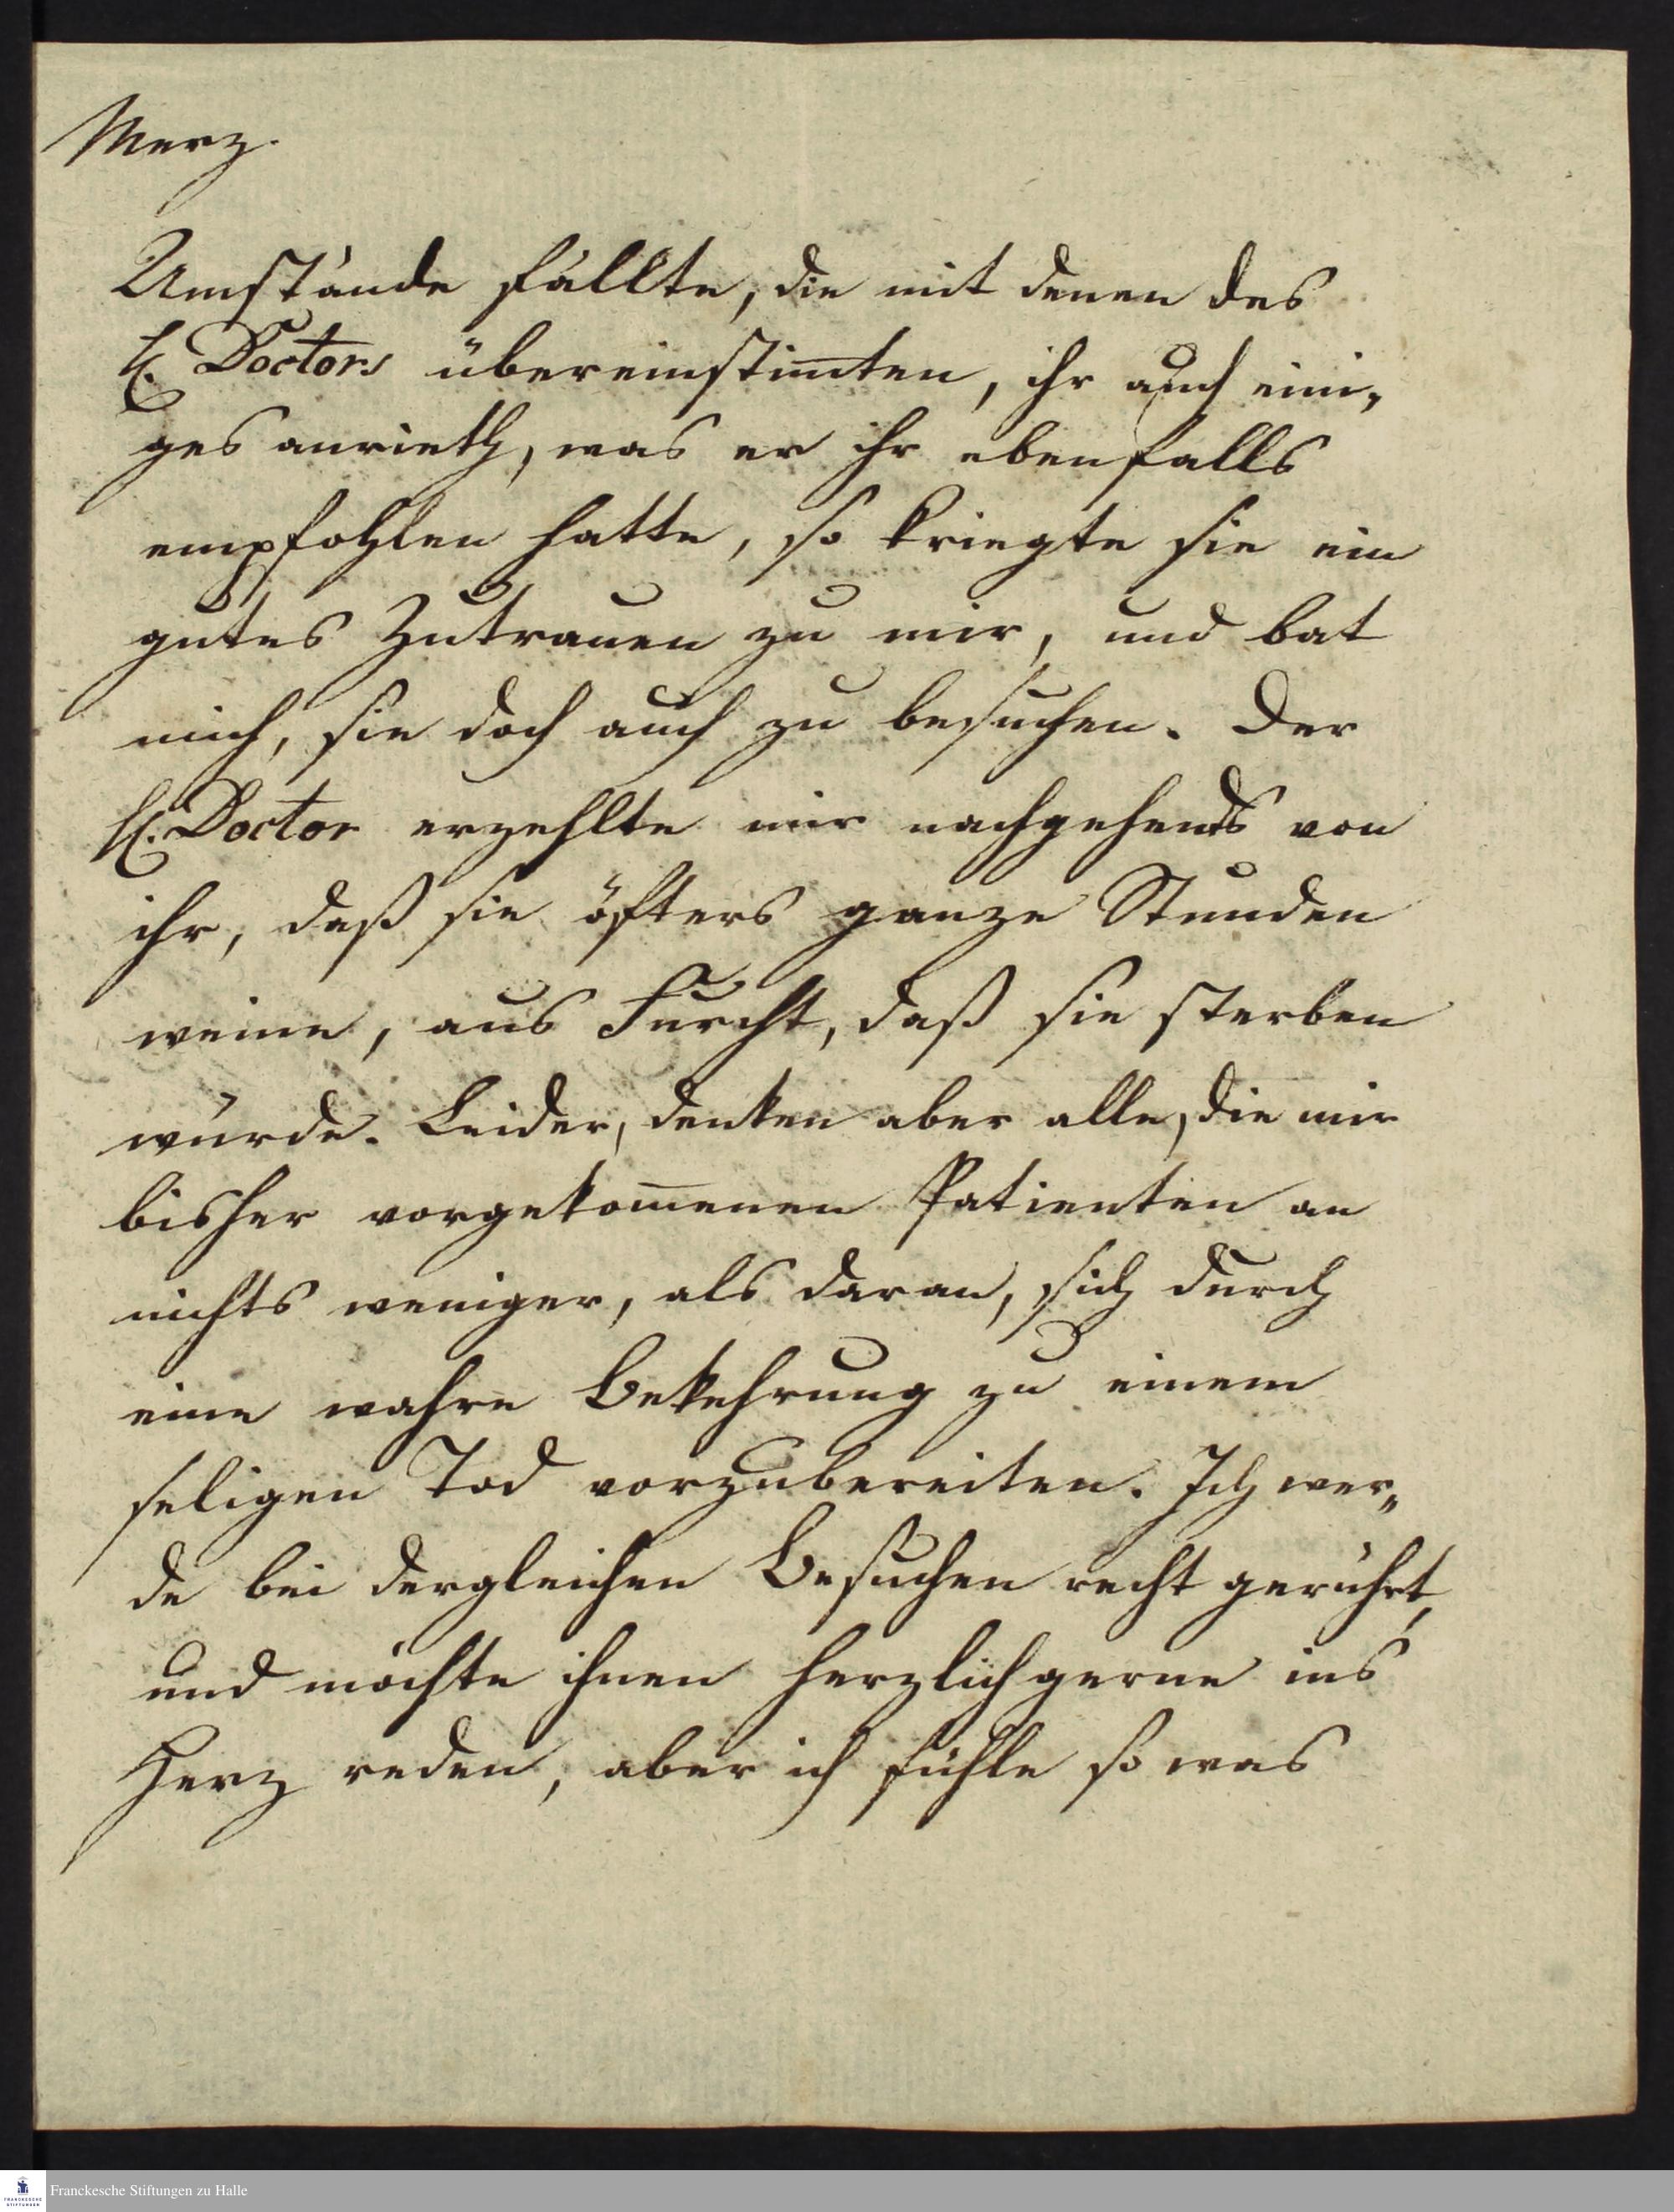 Merz.
Umstände fällte, die mit denen des
H. Doctors übereinstim̅ten, ihr auch eini„
ges anrieth, was er ihr ebenfalls
empfohlen hatte, so kriegte sie ein
gutes Zutrauen zu mir, und bat
mich, sie doch auch zu besuchen. Der
H. Doctor erzehlte mir nachgehends von
ihr, daß sie öfters ganze Stunden
weine, aus Furcht, daß sie sterben
würde. Leider, denken aber alle, die mir
bisher vorgekom̅enen Patienten an
nichts weniger, als daran, sich durch
eine wahre Bekehrung zu einem
seligen Tod vorzubereiten. Ich wer„
de bei dergleichen Besuchen recht gerührt,
und möchte ihnen herzlich gerne ins
Herz reden, aber ich fühle so was
FRANCKESCHE STIFTUNGEN
Franckesche Stiftungen zu Halle